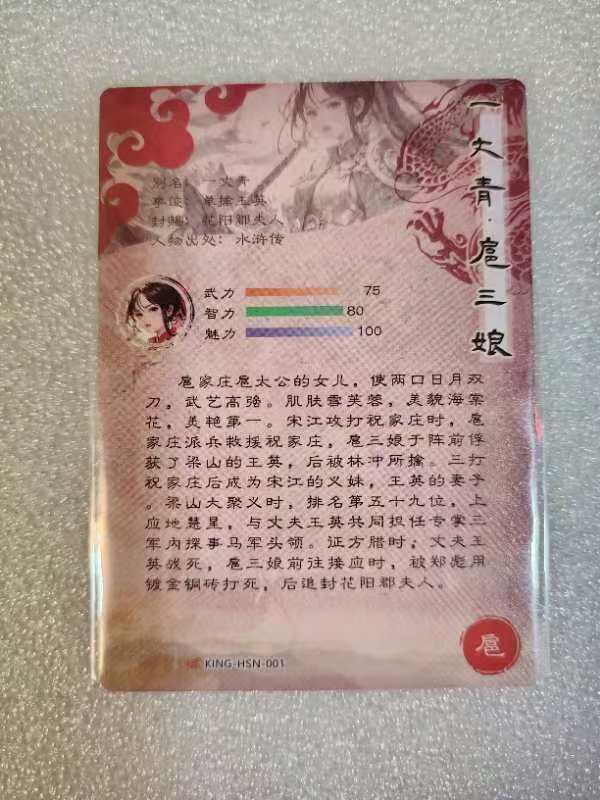 一丈青·扈三娘
别名：一丈青
事迹：单擒王英
封号：花阳郡夫人
人物出处：水浒传
武力 75
智力 80
魅力 100
扈家庄扈太公的女儿，使两口日月双
刀，武艺高强。肌肤雪芙蓉，美貌海棠
花，美艳第一。宋江攻打祝家庄时，扈
家庄派兵救援祝家庄，扈三娘于阵前俘
获了梁山的王英，后被林冲所擒。三打
祝家庄后成为宋江的义妹，王英的妻子
。梁山大聚义时，排名第五十九位，上
应地慧星，与丈夫王英共同担任专掌三
军内探事马军头领。证方腊时，丈夫王
英战死，扈三娘前往接应时，被郑彪用
镀金铜砖打死，后追封花阳郡夫人。
KING-HSN-001
扈